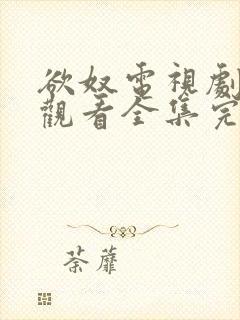 欲奴電視劇
觀看全集完
荼蘼